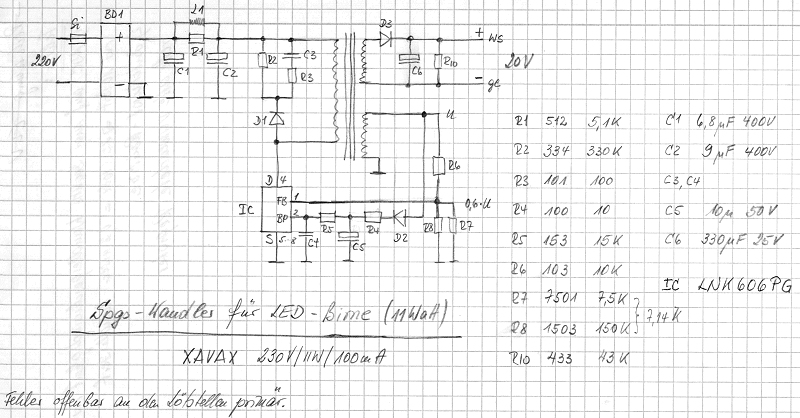 BD1
L1
Si
+
-
220V
R1
C1
C2
R2
C3
R3
D3
+ WS
C6
R10
20V
- ge
D1
U
R6
D 4
IC
FB 1
BP 2
S 5-8
0,6·U
R5
R4
D2
R8
R7
C4
C5
R1 512 5,1K
R2 334 330K
R3 101 100
R4 100 10
R5 153 15K
R6 103 10K
R7 7501 7,5K
R8 1503 150K
7,14K
R10 433 43K
C1 6,8µF 400V
C2 9µF 400V
C3, C4
C5 10µ 50V
C6 330µF 25V
IC LNK606PG
Spgs-Wandler für LED-Birne (11Watt)
XAVAX 230V/11W/100mA
Fehler offenbar an den Lötstellen primär.